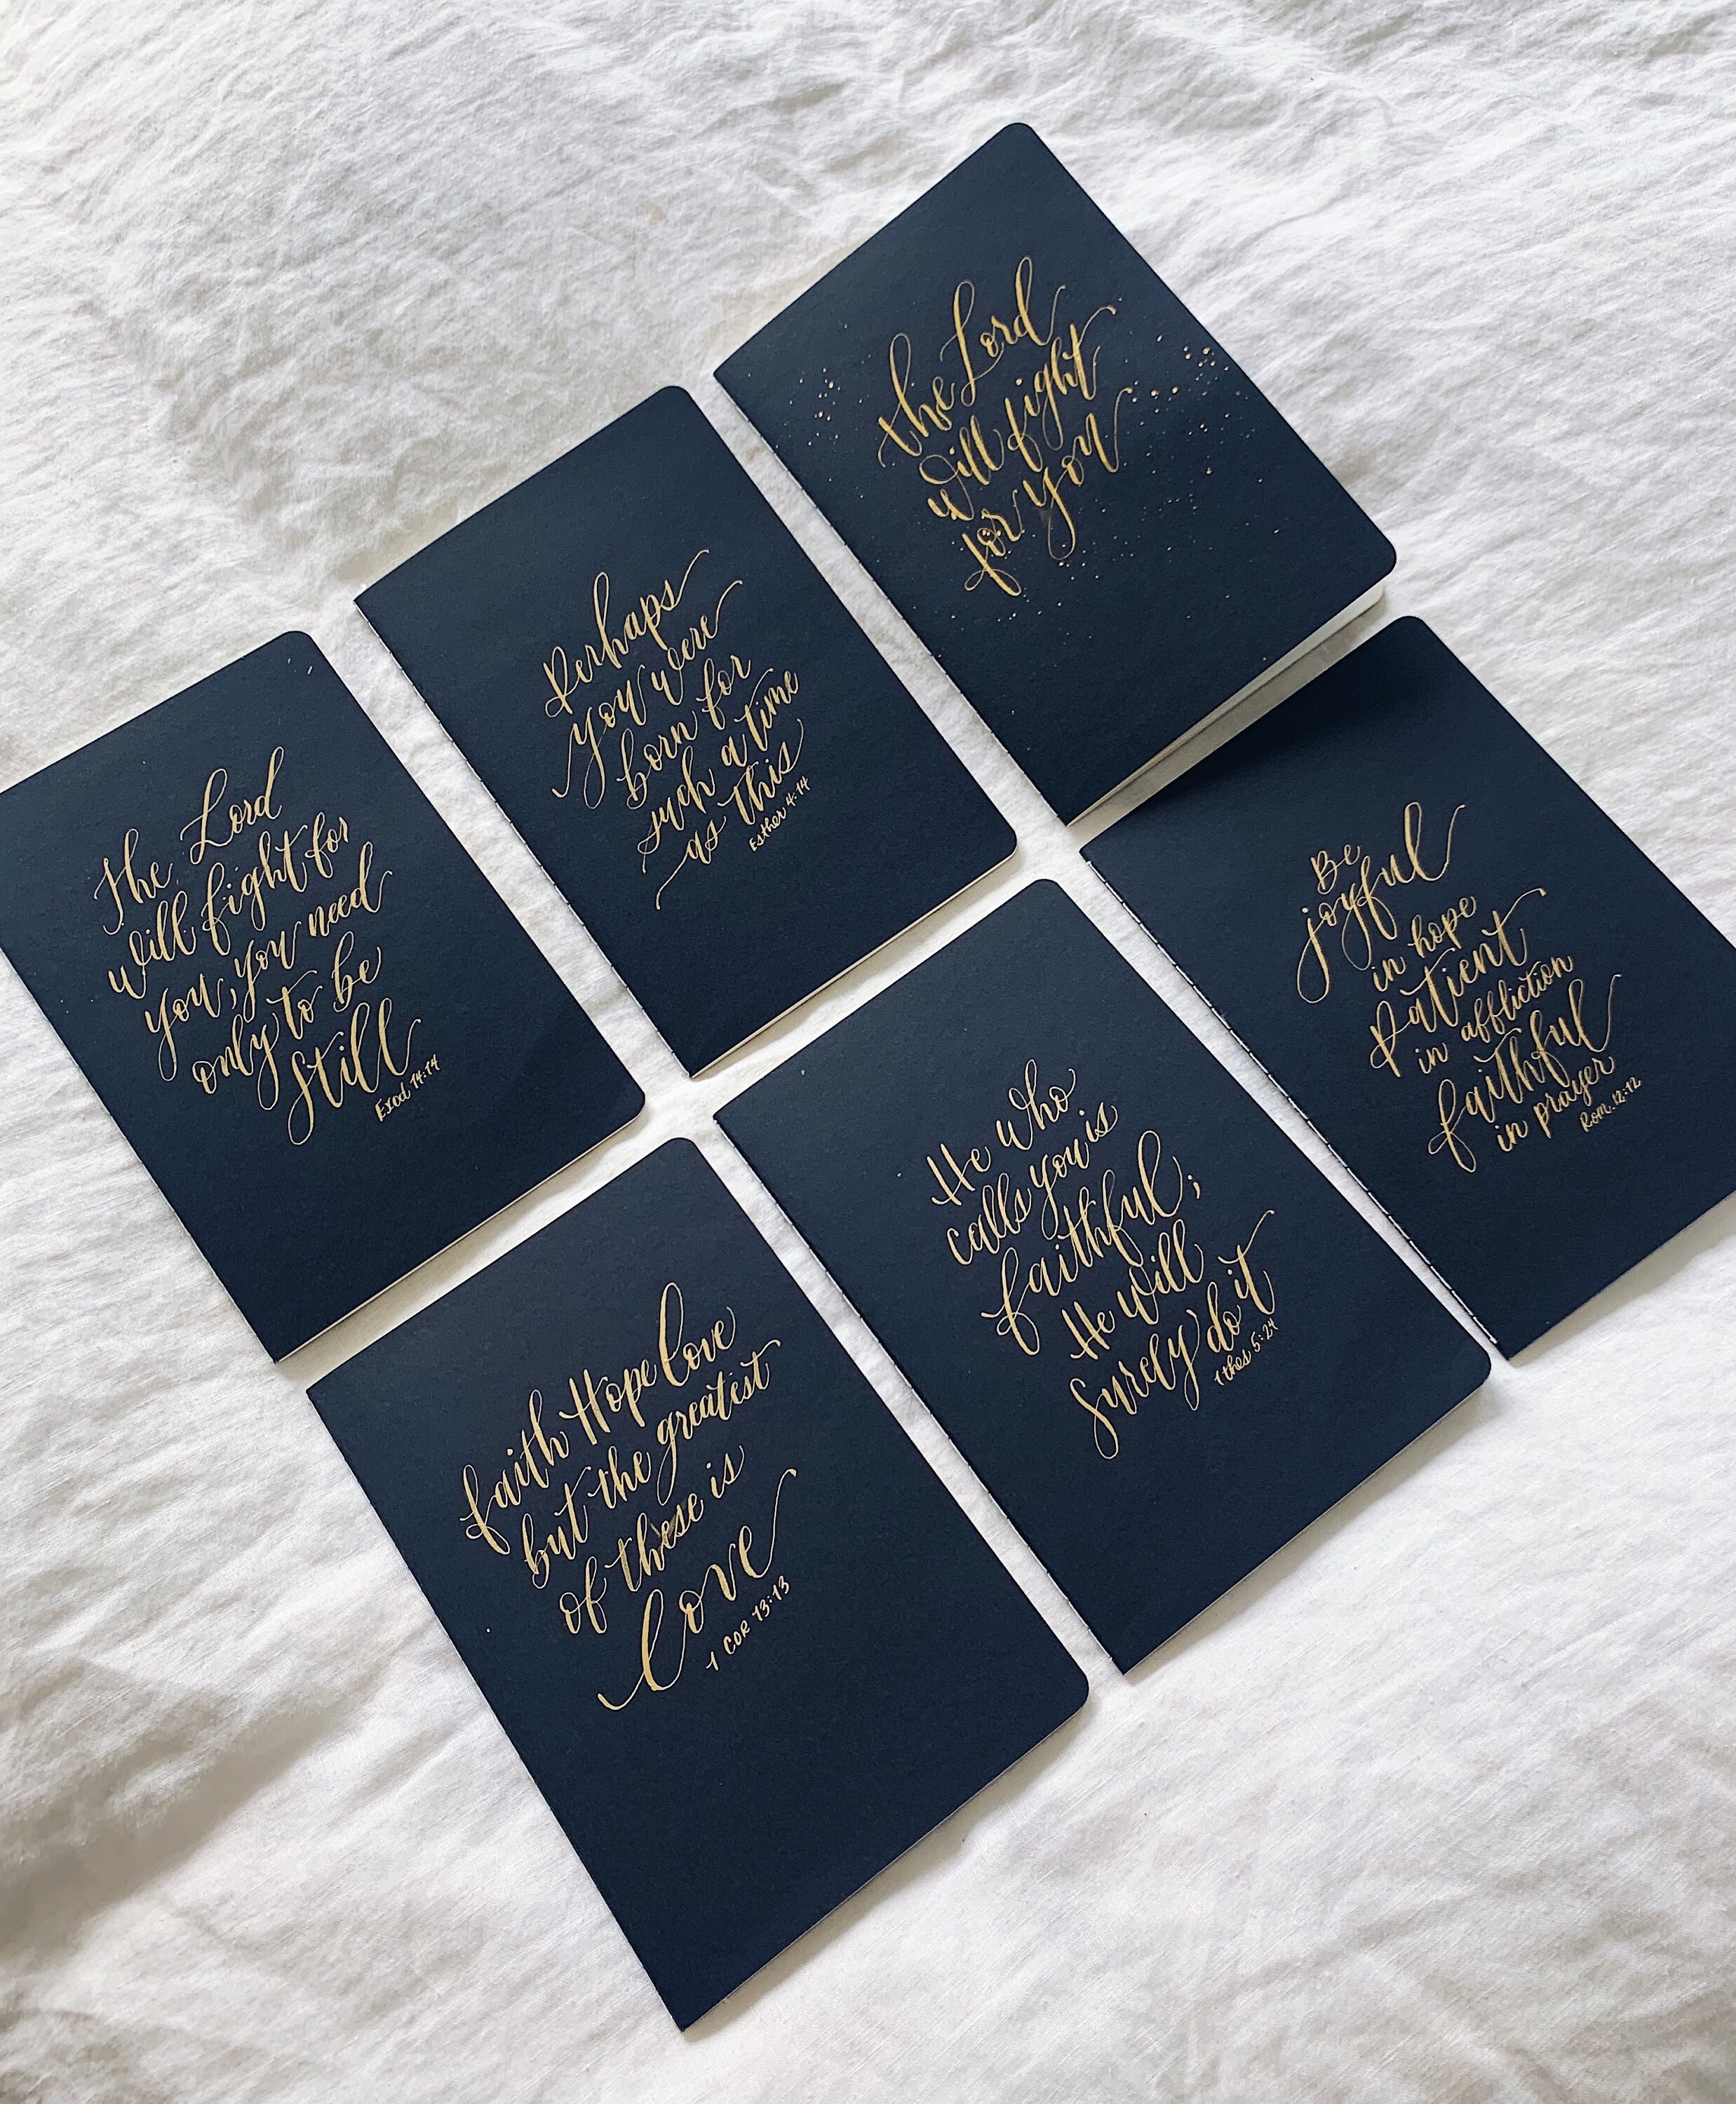 The Lord
will fight for
you, you need
only to be
still
Exod 14:14
Perhaps
you were
born for
such a time
as this
Esther 4:14
the Lord
will fight
for you
faith Hope love
but the greatest
of these is
love
1 COR 13:13
He who
calls you is
faithful;
He will
surely do it
1 thes 5:24
Be
joyful
in hope
Patient
in affliction
faithful
in prayer
Rom. 12:12